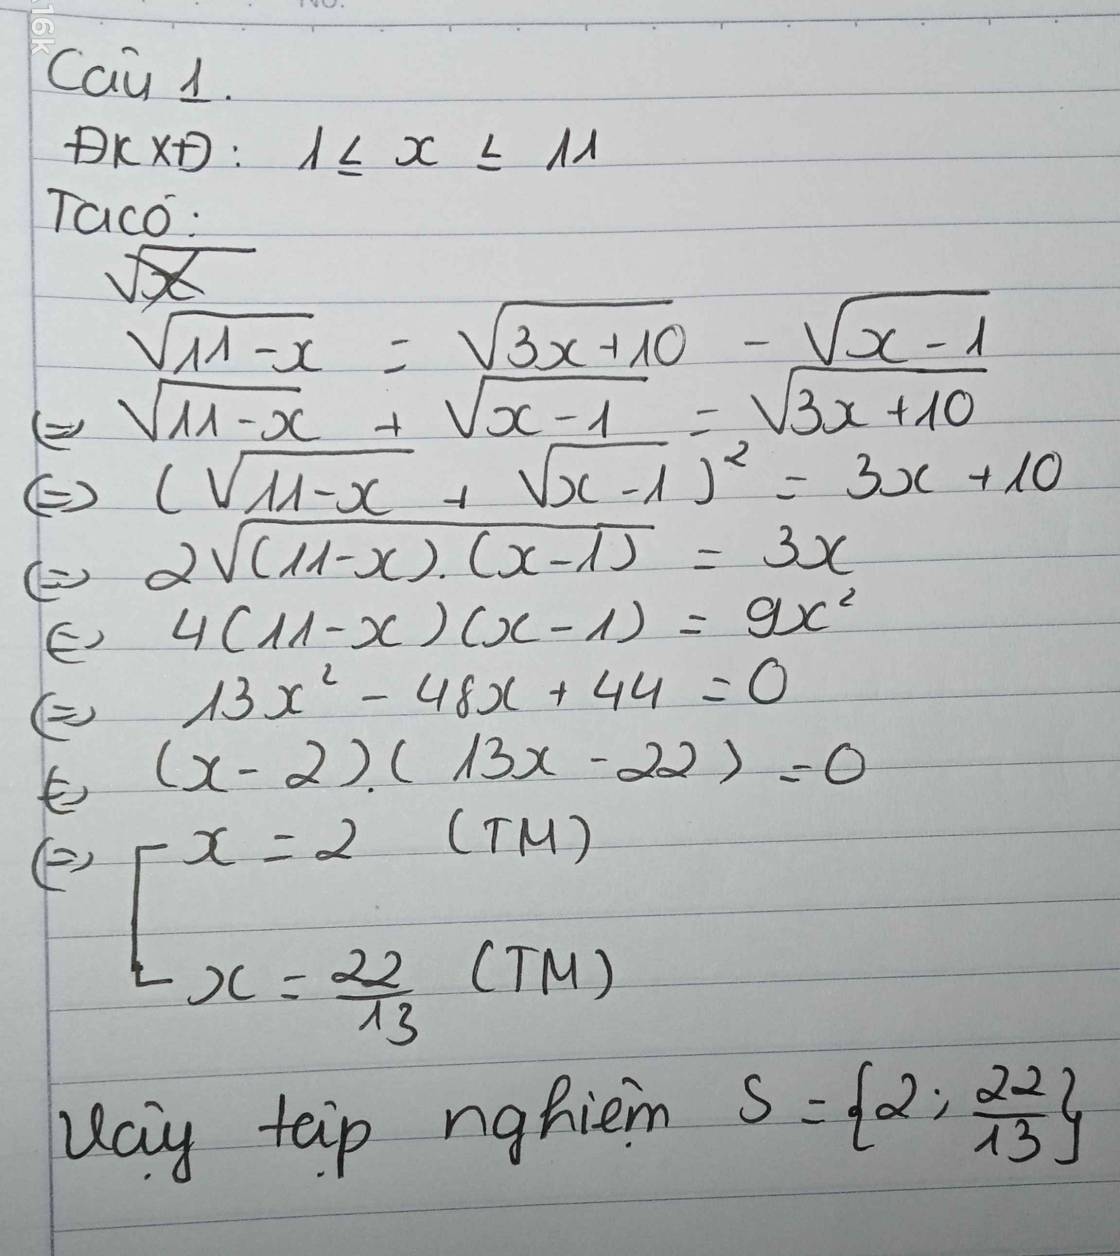 Câu 1.
ĐKXĐ: 1 ≤ x ≤ 11
Ta có:
√x
√(11-x) = √(3x+10) - √(x-1)
⇔ √(11-x) + √(x-1) = √(3x+10)
⇔ (√(11-x) + √(x-1))² = 3x+10
⇔ 2√((11-x).(x-1)) = 3x
⇔ 4(11-x)(x-1) = 9x²
⇔ 13x² - 48x + 44 = 0
⇔ (x-2).(13x-22) = 0
⇔ [ x = 2 (TM)
x = 22/13 (TM)
Vậy tập nghiệm S = {2; 22/13}